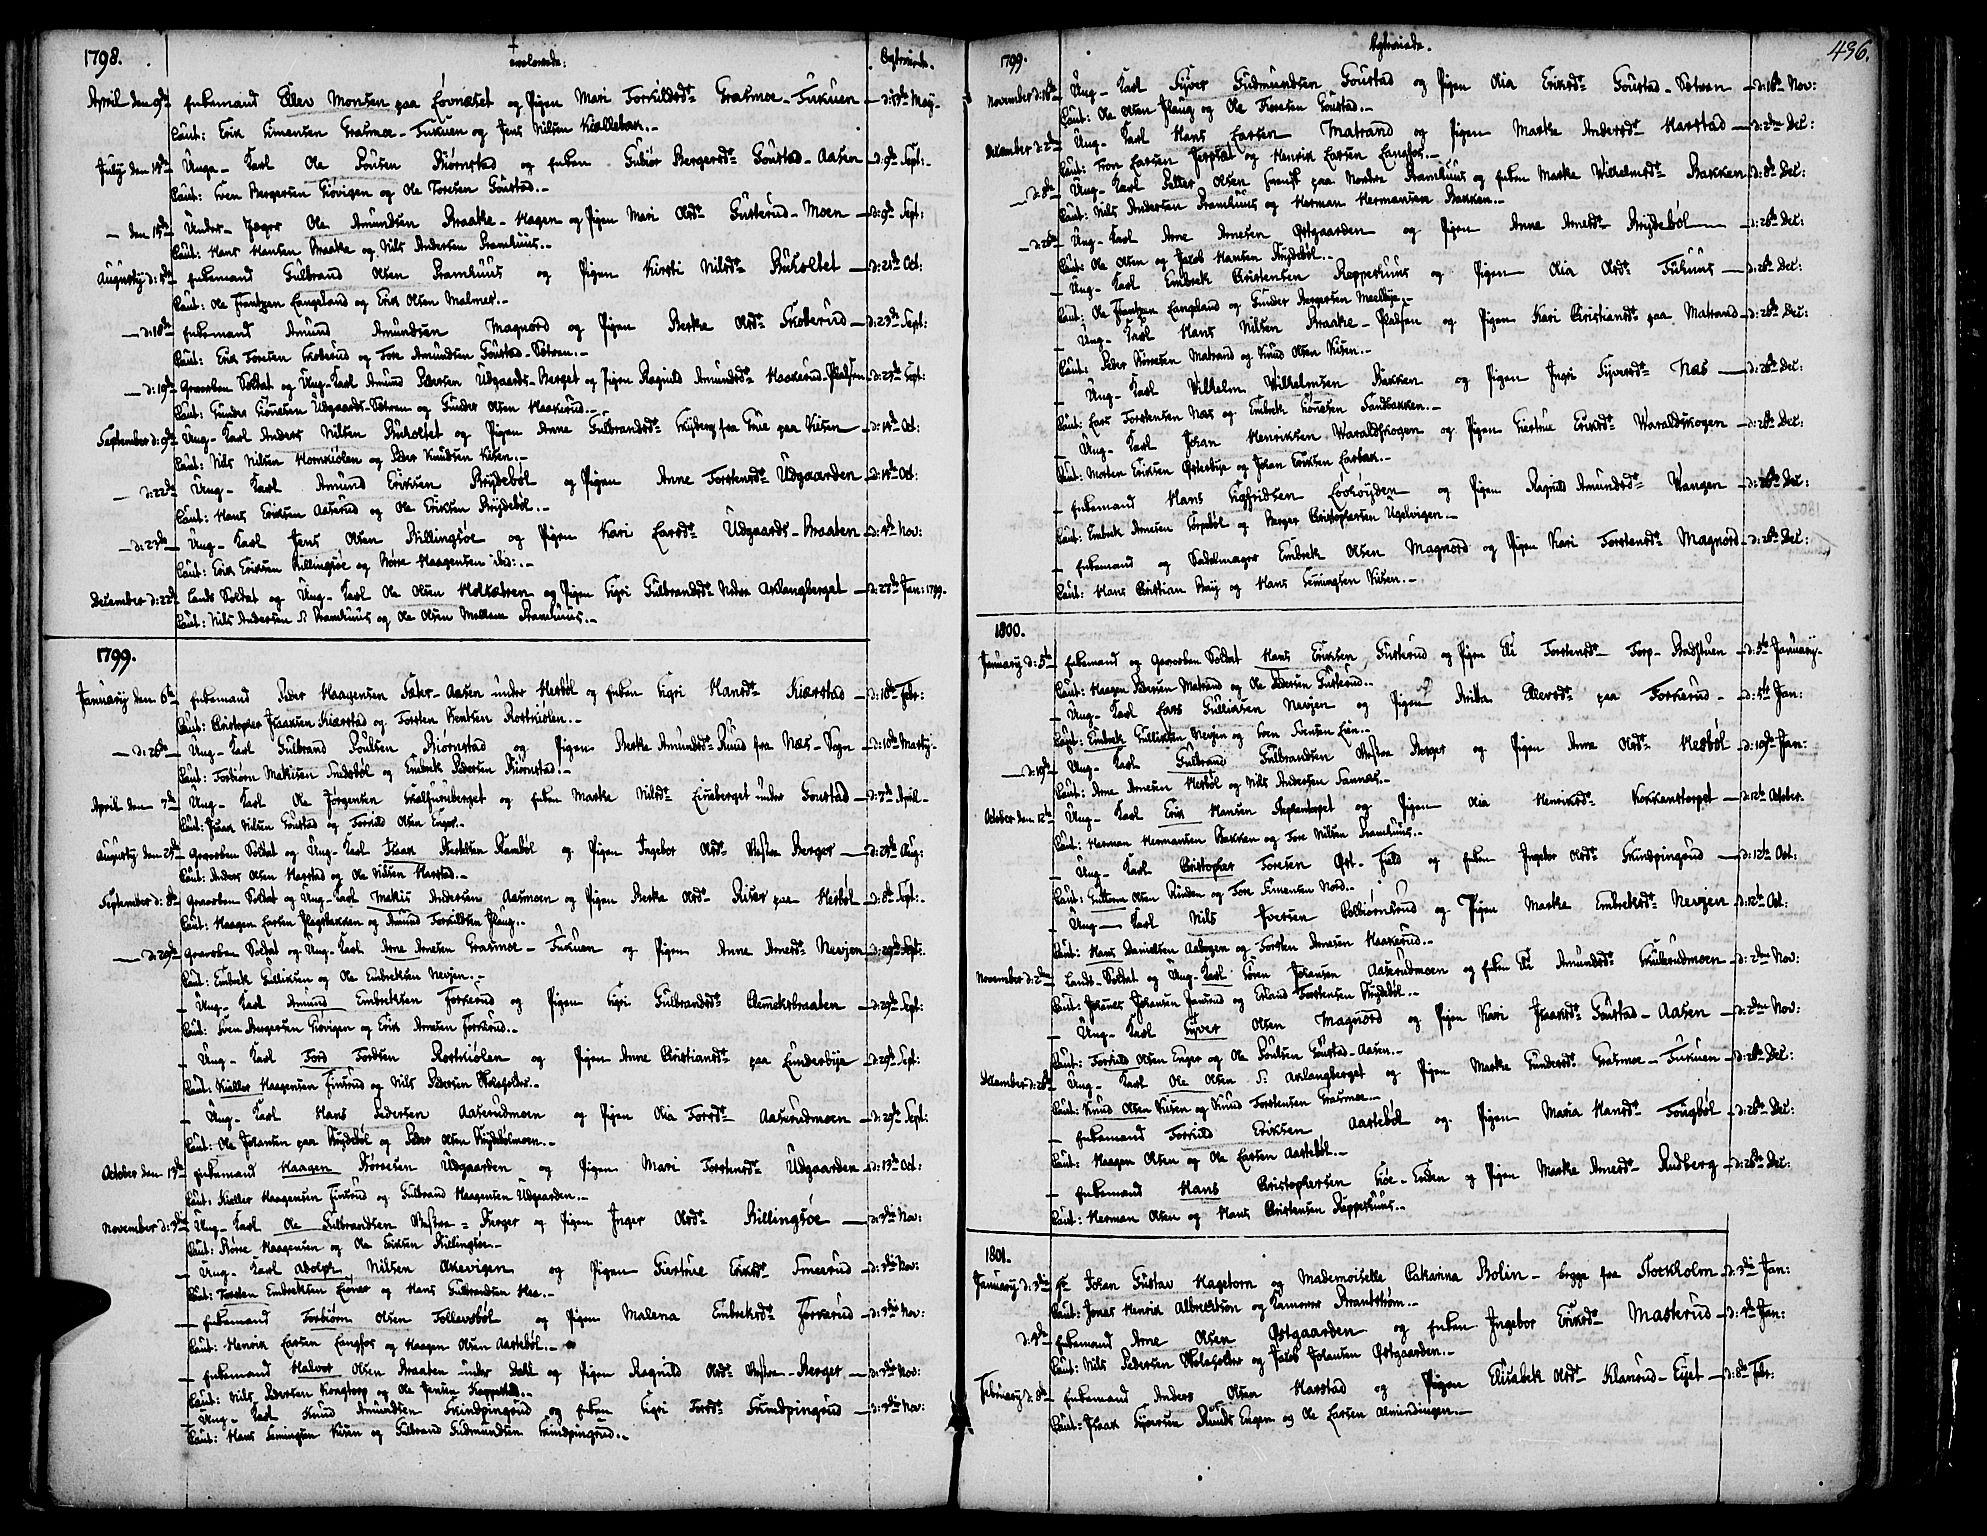 1798.
Trolovede:
Copulerede.
April den 9de Enkemand Eller Monsen paa Lovnæset og Pigen Mari Torkildsdr. Grasmoe-Tukuen d: 17de May
Caut: Erik Simensen Grasmoe-Tukuen og Jens Nilsen Kiøllebæk.
July den 14de Unge-Karl Ole Poulsen Biørnstad og Enken Gubiør Bergersdr. Goustad-Aasen d: 9de Sept:
Caut: Sven Bergersen Giøvigen og Ole Toresen Goustad.
den 15de Under-Jæger Ole Amundsen Braate-Hagen og Pigen Mari Olsdr. Gusterud-Moen d: 9de Sept:
Caut: Hans Hansen Braate og Nils Andersen Pramhuus.
Augusty d: 5te Enkemand Gulbrand Olsen Pramhuus og Pigen Kirsti Nilsdr. Buholtet d: 21de Oct:
Caut: Ole Frantzen Langeland og Erik Olsen Malmer.
d: 18de Enkemand Amund Amundsen Magnord og Pigen Berte Olsdr. Skoterud d: 23de Sept:
Caut: Erik Toresen Skoterud og Tore Amundsen Goustad-Sætren.
d: 19de Gevorben Soldat og Ung-Karl Amund Pedersen Udgaards-Berget og Pigen Ragnild Amundsdr. Haakerud-Pladsen d: 23de Sept:
Caut: Gunder Simensen Udgaards-Sætren og Gunder Olsen Haakerud.
September d: 9de Ung-Karl Anders Nilsen Buholtet og Pigen Anne Gulbrandsdr. fra Grue paa Kisen d: 14de Oct:
Caut: Nils Nilsen Hornkiølen og Peder Knudsen Kisen.
d: 22de Ung-Karl Amund Eriksen Brydebøl og Pigen Anne Torstensdr. Udgaarden d: 14de Oct:
Caut: Hans Eriksen Aaserud og Ole Eriksen Brydebøl.
d: 23de Ung-Karl Jens Olsen Billingsøe og Pigen Kari Larsdr. Udgaards-Braaten d: 4de Nov:
Caut: Erik Eriksen Billingsøe og Børre Haagensen ibid:.
December d: 22de Lands Soldat og Ung-Karl Ole Olsen Holtsætren og Pigen Sigri Gulbrandsdr. Nedre Aklangberget d: 27de Jan: 1799.
Caut: Nils Andersen S. Pramhuus og Ole Olsen Mellem Pramhuus.
1799.
January den 6te Enkemand Peder Haagensen Sæter-Aasen under Hesbøl og Enken Sigri Hansdr. Kierstad d: 10de Febr:
Caut: Christopher Isaaksen Kierstad og Torsten Bentsen Rostkiølen.
d: 26de Ung-Karl Gulbrand Poulsen Biørnstad og Pigen Berte Amundsdr. Ruud fra Næs-Sogn d: 10de Marty
Caut: Torbiørn Matisen og Embret Pedersen Biørnstad.
April den 7de Ung-Karl Ole Jørgensen Skalfureberget og Enken Marte Nilsdr. Lineberget under Goustad d: 7de April
Caut: Isaak Nilsen Goustad og Torkild Olsen Enger.
Augusty den 25de Gevorben Soldat og Ung-Karl Isaak Rambøl og Pigen Ingebor Olsdr. Vestre Berger d: 25de Aug:
Caut: Anders Olsen Harstad og Ole Nilsen Harstad.
September d: 8de Gevorben Soldat og Ung-Karl Matis Andersen Aasmoen og Pigen Berte Olsdr. Riiser paa Hesbøl d: 8de Sept:
Caut: Haagen Larsen Flagstakken og Amund Torkildsen Plaug.
d: 29de Gevorben Soldat og Ung-Karl Arne Arnesen Grasmoe-Tukuen og Pigen Anne Arnesdr. Nevjen d: 29de Sept:
Caut: Embret Gulliksen og Ole Embretsen Nevjen.
Ung-Karl Amund Embretsen Torkerud og Pigen Sigri Gulbrandsdr. Clemetsbraaten d: 29de Sept:
Caut: Sven Bergersen Giøvigen og Erik Arnesen Torkerud.
Ung-Karl Tord Tordsen Rostkiølen og Pigen Anne Christiansdr. paa Lunderbye d: 29de Sept:
Caut: Kittler Haagensen Finsrud og Nils Pedersen Skoleholder.
Ung-Karl Hans Pedersen Aaserudmoen og Pigen Olia Tordsdr. Aaserudmoen d: 29de Sept:
Caut: Ole Johansen paa Brydebøl og Peder Olsen Brydebølmoen.
October den 13de Enkemand Haagen Børresen Udgaarden og Pigen Mari Torstensdr. Udgaarden d: 13de Oct:
Caut: Kittler Haagensen Finsrud og Gulbrand Haagensen Udgaarden.
November d: 3die Ung-Karl Ole Gulbrandsen Vestre-Berger og Pigen Inger Olsdr. Billingsøe d: 3die Nov:
Caut: Børre Haagensen og Ole Eriksen Billingsøe.
Ung-Karl Adolph Nilsen Skevigen og Pigen Giertrue Eriksdr. Smeerud d: 3die Nov:
Caut: Torsten Embretsen Lierner og Hans Gulbrandsen Hee.
Enkemand Torbiørn Olsen Tollersbøl og Pigen Malena Embretsdr. Torkerud d: 3die Nov:
Caut: Henrik Larsen Langfos og Haagen Olsen Aastebøl.
Enkemand Halvor Olsen Braaten under Dahl og Pigen Ragnild Olsdr. Vestre-Berger d: 3die Nov:
Caut: Nils Pedersen Kongtorp og Ole Jensen Kappestad.
Ung-Karl Knud Amundsen Skindpingrud og Enken Sigri Tordsdr. Skindpingrud d: 3die Nov:
Caut: Hans Semingsen Kisen og Gulbrand Gudmundsen Skindpingrud.
436.
1799.
Copulerede.
November d: 16de Ung-Karl Syver Gudmundsen Goustad og Pigen Olia Eriksdr. Goustad-Sætren d: 16de Nov:
Caut: Ole Olsen Plaug og Ole Toresen Goustad.
December d: 2den Ung-Karl Hans Larsen Matrand og Pigen Marte Andersdr. Harstad d: 2den Dec:
Caut: Tron Larsen Jerpset og Henrik Larsen Langfos.
d: 8de Ung-Karl Petter Olsen paa Nordre Pramhuus og Enken Marte Wilhelmsdr. Bakken d: 8de Dec:
Caut: Nils Andersen Pramhuus og Herman Hermansen Bakken.
d: 26de Ung-Karl Arne Arnesen Østgaarden og Pigen Anne Arnesdr. Brydebøl d: 26de Dec:
Caut: Ole Olsen og Jacob Hansen Brydebøl.
Ung-Karl Embret Christensen Ræpperhuus og Pigen Olia Olsdr. Tuhuus d: 26de Dec:
Caut: Ole Frantzen Langeland og Gunder Bergersen Melbye.
Ung-Karl Hans Nilsen Braate-Pladsen og Pigen Kari Christiansdr. paa Matrand d: 26de Dec:
Caut: Peder Børresen Matrand og Knud Olsen Kisen.
Ung-Karl Wilhelm Wilhelmsen Bakken og Pigen Ingri Syversdr. Næs d: 26de Dec:
Caut: Lars Torstensen Næs og Embret Simensen Sandbakken.
Ung-Karl Johan Henriksen Waraldskogen og Pigen Giertrue Eriksdr. Waraldskogen d: 26de Dec:
Caut: Morten Eriksen Østerbye og Johan Eriksen Lærbæk.
Enkemand Hans Sigfridsen Løvhøyden og Pigen Ragnild Amundsdr. Wangen d: 26de Dec:
Caut: Embret Arnesen Torpebøl og Berger Christophersen Ugelvigen.
Enkemand og Sadelmager Embret Olsen Magnord og Pigen Kari Torstensdr. Magnord d: 26de Dec:
Caut: Hans Christian Bøy og Hans Semingsen Kisen.
1800.
January d: 5te Enkemand og Gevorben Soldat Hans Eriksen Gusterud og Pigen Eli Torstensdr. Torp-Badstuen d: 5te January
Caut: Haagen Pedersen Matrand og Ole Pedersen Gusterud.
Ung-Karl Lars Gulliksen Nevjen og Pigen Britta Ellevsdr. paa Torkerud d: 5te Jan:
Caut: Embret Gulliksen Nevjen og Sven Svensen Lien.
d: 19de Ung-Karl Gulbrand Gulbrandsen Vestre Berger og Pigen Anne Olsdr. Hesbøl d: 19de Jan:
Caut: Arne Arnesen Hesbøl og Nils Andersen Sannæs.
October den 12te Ung-Karl Erik Hansen Neplentorpet og Pigen Olia Henriksdr. Kokkenstorpet d: 12te October
Caut: Herman Hermansen Bakken og Tore Nilsen Pramhuus.
Ung-Karl Christopher Toresen Øst-Field og Enken Ingebor Olsdr. Skindpingrud d: 12te Oct:
Caut: Guttorm Olsen Rinden og Tore Simensen Nord.
Ung-Karl Nils Iversen Kolbiørnsrud og Pigen Marte Embretsdr. Nevjen d: 12te Oct:
Caut: Hans Danielsen Aabogen og Torsten Arnesen Haakerud.
November d: 2den Lands-Soldat og Ung-Karl Søren Johansen Aaserudmoen og Enken Eli Amundsdr. Skulerudmoen d: 2den Nov:
Caut: Johannes Johansen Jansrud og Erland Torstensen Brydebøl.
Ung-Karl Syver Olsen Magnord og Pigen Kari Isaaksdr. Goustad-Aasen d: 2den Nov:
Caut: Torkild Olsen Enger og Ole Poulsen Goustad-Aasen.
December d: 26de Ung-Karl Ole Olsen S. Aklangberget og Pigen Marte Gundersdr. Grasmoe-Tukuen d: 26de Dec:
Caut: Knud Olsen Kisen og Knud Torstensen Grasmoe.
Enkemand Torkild Eriksen Aastebøl og Pigen Maria Hansdr. Tougbøl d: 26de Dec:
Caut: Haagen Olsen og Ole Larsen Aastebøl.
Enkemand Hans Christophersen Siøe-Enden og Pigen Marte Arnesdr. Rudberg d: 26de Dec:
Caut: Herman Olsen og Hans Christensen Ræpperhuus.
1801.
January d: 3die Hr. Johan Gustav Hagetorn og Mademoiselle Catarina Bolin - begge fra Stockholm d: 3die Jan:
Caut: Jonas Henrik Albrectson og Kamerer Strandstrøm.
d: 4de Enkemand Arne Olsen Østgaarden og Enken Ingebor Eriksdr. Masterud d: 4de Jan:
Caut: Nils Pedersen Skoleholder og Jacob Johansen Østgaarden.
February d: 8de Enkemand Anders Olsen Harstad og Pigen Elisabet Olsdr. Klanrud-Eyet d: 8de Febr:
Caut: Isaak Syversen Ruuds Engen og Ole Larsen Almindingen.